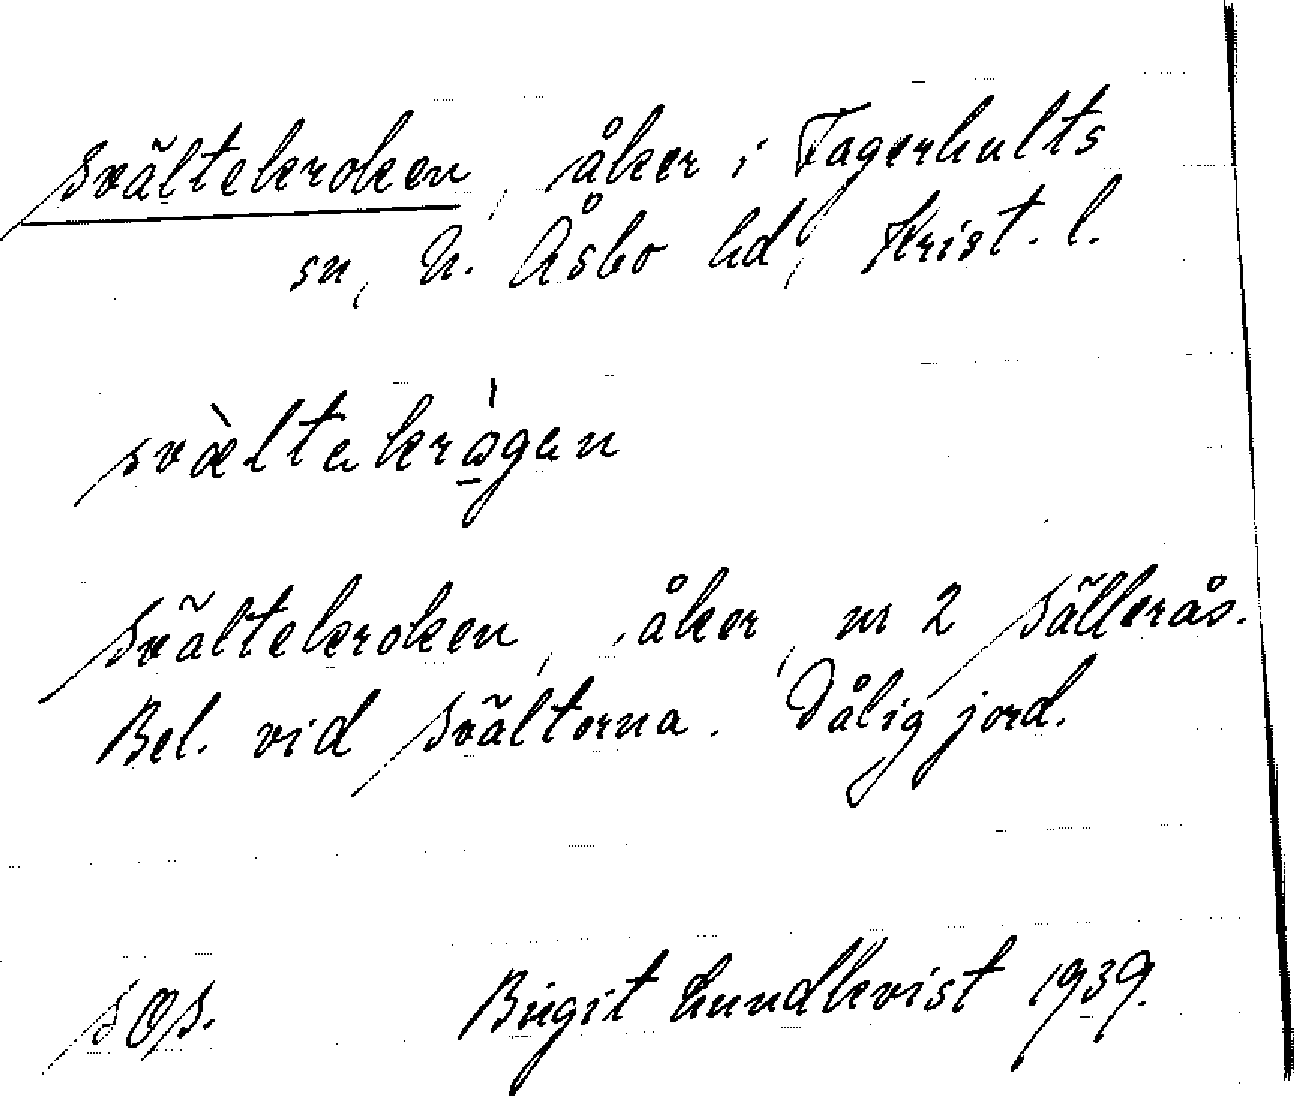 Svältekroken, åker i Fagerhults
sn, N. Åsbo hd, Krist. l.
svæ̀ltakrɔ̀gan
Svältekroken, åker, nr 2 Sällerås.
Bel. vid Svälterna. Dålig jord.
SOS. Birgit Lundkvist 1939.